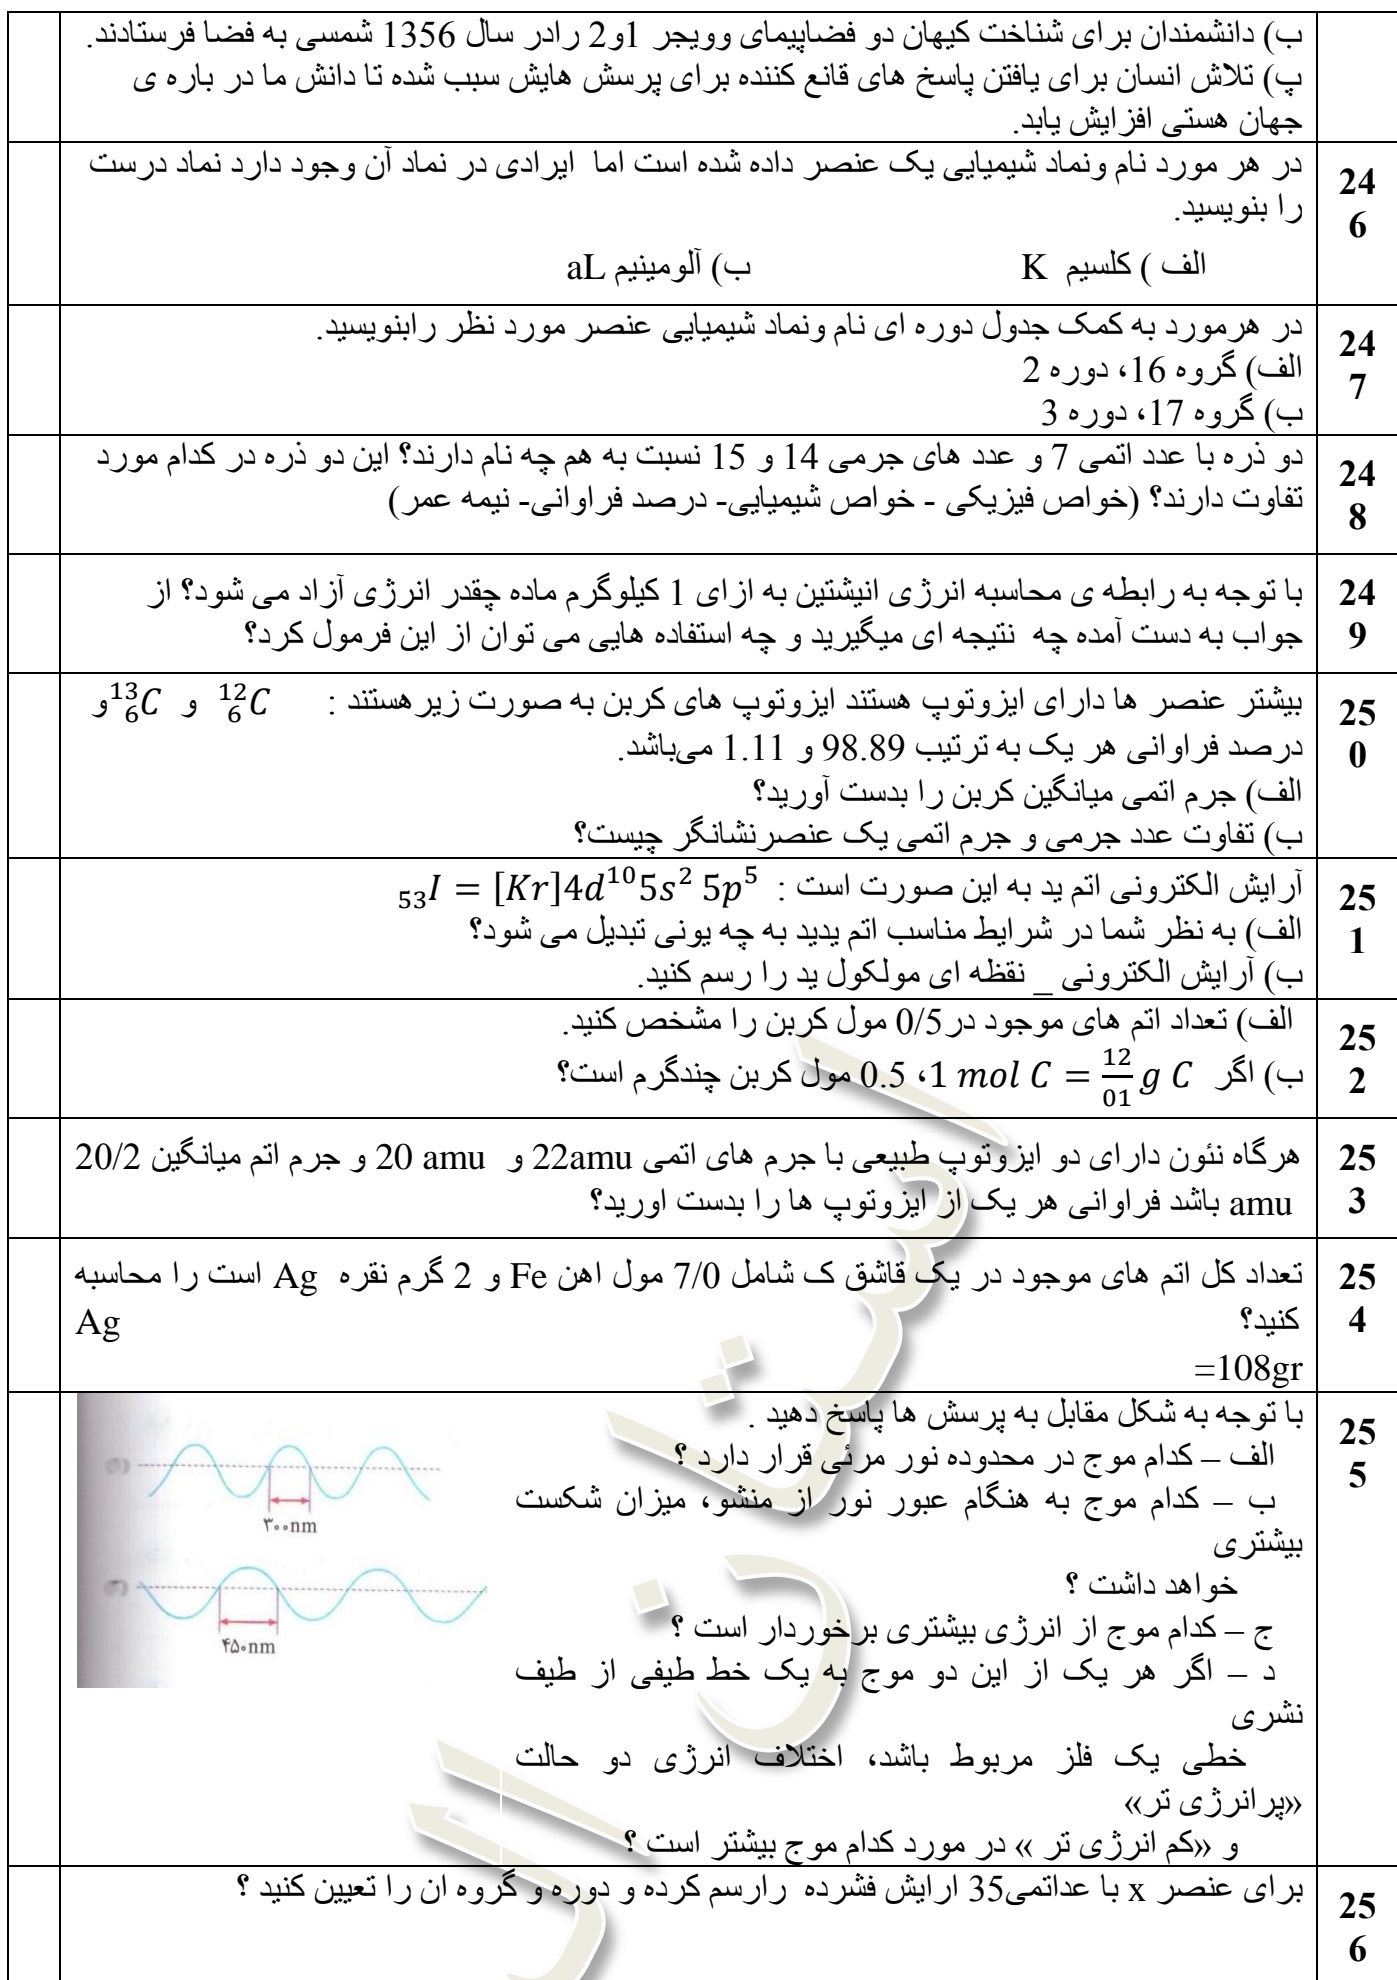 ب) دانشمندان برای شناخت کیهان دو فضاپیمای وویجر 1و2 رادر سال 1356 شمسی به فضا فرستادند.
پ) تلاش انسان برای یافتن پاسخ های قانع کننده برای پرسش هایش سبب شده تا دانش ما در باره ی
جهان هستی افزایش یابد.
24
6
در هر مورد نام ونماد شیمیایی یک عنصر داده شده است اما ایرادی در نماد آن وجود دارد نماد درست
را بنویسید.
الف ) کلسیم K ب) آلومینیم aL
24
7
در هرمورد به کمک جدول دوره ای نام ونماد شیمیایی عنصر مورد نظر رابنویسید.
الف) گروه 16، دوره 2
ب) گروه 17، دوره 3
24
8
دو ذره با عدد اتمی 7 و عدد های جرمی 14 و 15 نسبت به هم چه نام دارند؟ این دو ذره در کدام مورد
تفاوت دارند؟ (خواص فیزیکی - خواص شیمیایی- درصد فراوانی- نیمه عمر)
24
9
با توجه به رابطه ی محاسبه انرژی انیشتین به ازای 1 کیلوگرم ماده چقدر انرژی آزاد می شود؟ از
جواب به دست آمده چه نتیجه ای میگیرید و چه استفاده هایی می توان از این فرمول کرد؟
25
0
بیشتر عنصر ها دارای ایزوتوپ هستند ایزوتوپ های کربن به صورت زیرهستند : $^{12}_{6}C$ و $^{13}_{6}C$و
درصد فراوانی هر یک به ترتیب 98.89 و 1.11 می‌باشد.
الف) جرم اتمی میانگین کربن را بدست آورید؟
ب) تفاوت عدد جرمی و جرم اتمی یک عنصرنشانگر چیست؟
25
1
آرایش الکترونی اتم ید به این صورت است : $_{53}I = [Kr]4d^{10}5s^2 5p^5$
الف) به نظر شما در شرایط مناسب اتم یدید به چه یونی تبدیل می شود؟
ب) آرایش الکترونی _ نقطه ای مولکول ید را رسم کنید.
25
2
الف) تعداد اتم های موجود در0/5 مول کربن را مشخص کنید.
ب) اگر $1 mol C = \frac{12}{01} g C$، 0.5 مول کربن چندگرم است؟
25
3
هرگاه نئون دارای دو ایزوتوپ طبیعی با جرم های اتمی 22amu و 20 amu و جرم اتم میانگین 20/2
amu باشد فراوانی هر یک از ایزوتوپ ها را بدست اورید؟
25
4
تعداد کل اتم های موجود در یک قاشق ک شامل 7/0 مول اهن Fe و 2 گرم نقره Ag است را محاسبه
کنید؟ Ag
=108gr
25
5
با توجه به شکل مقابل به پرسش ها پاسخ دهید .
الف – کدام موج در محدوده نور مرئی قرار دارد ؟
ب – کدام موج به هنگام عبور نور از منشو، میزان شکست
بیشتری
خواهد داشت ؟
ج – کدام موج از انرژی بیشتری برخوردار است ؟
د – اگر هر یک از این دو موج به یک خط طیفی از طیف
نشری
خطی یک فلز مربوط باشد، اختلاف انرژی دو حالت
«پرانرژی تر»
و «کم انرژی تر » در مورد کدام موج بیشتر است ؟
۳۰۰nm
۴۵۰nm
25
6
برای عنصر x با عداتمی35 ارایش فشرده رارسم کرده و دوره و گروه ان را تعیین کنید ؟